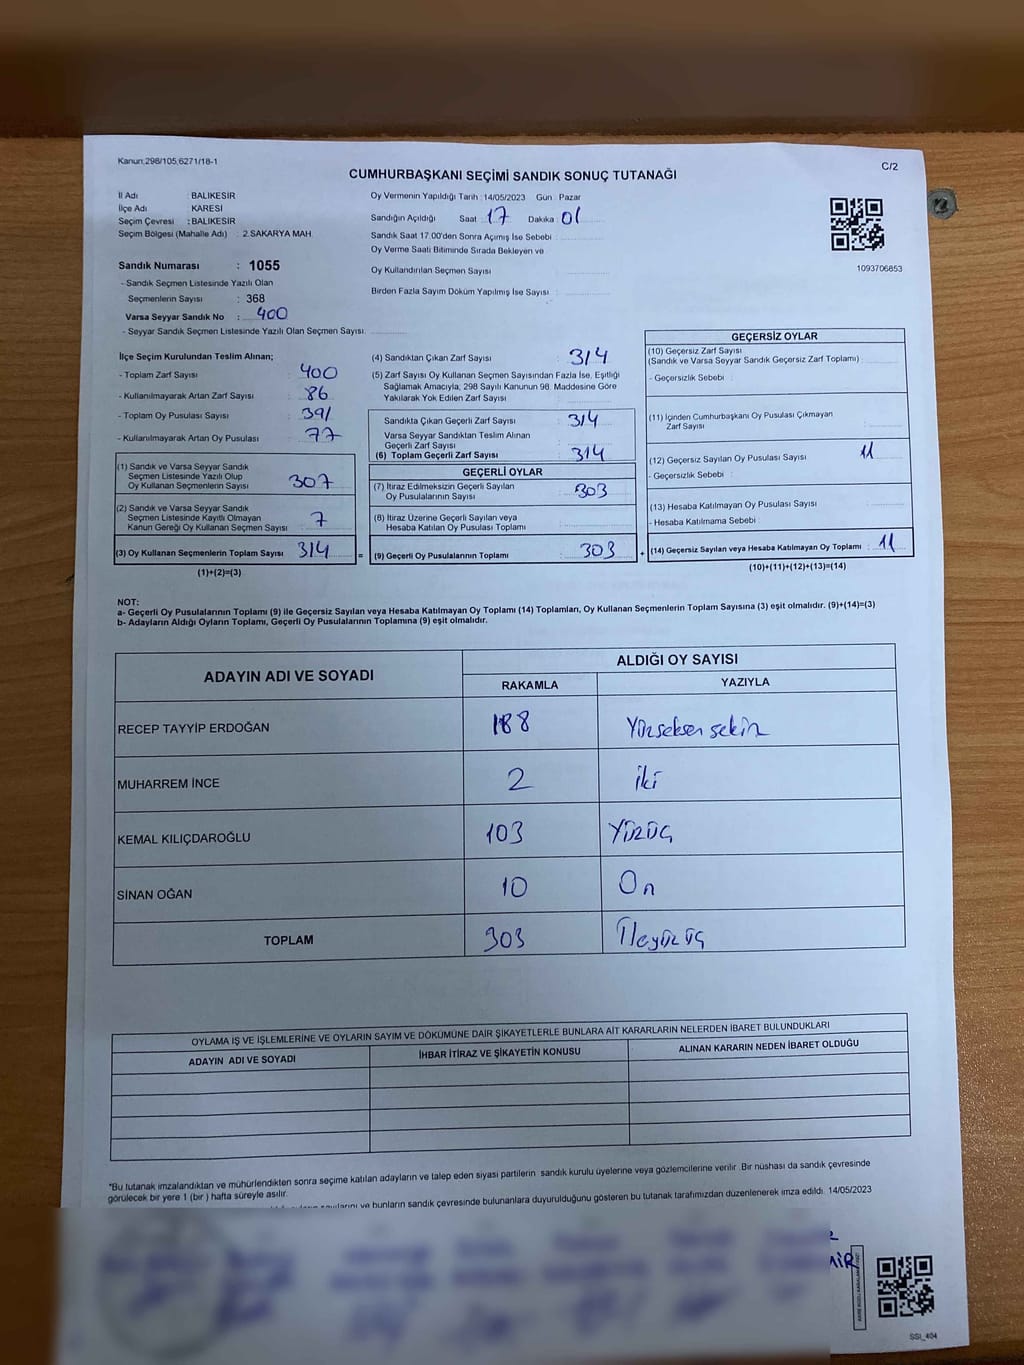 Kanun,298/105,6271/18-1
C/2
CUMHURBAŞKANI SEÇİMİ SANDIK SONUÇ TUTANAĞI
İl Adı : BALIKESİR
İlçe Adı : KARESİ
Seçim Çevresi : BALIKESİR
Seçim Bölgesi (Mahalle Adı) : 2.SAKARYA MAH.
Oy Vermenin Yapıldığı Tarih : 14/05/2023 Gün : Pazar
Sandığın Açıldığı Saat : 17 Dakika : 01
Sandık Saat 17.00'den Sonra Açımış İse Sebebi :
Oy Verme Saati Bitiminde Sırada Bekleyen ve
Oy Kullandırılan Seçmen Sayısı
Birden Fazla Sayım Döküm Yapılmış İse Sayısı :
1093706853
Sandık Numarası : 1055
- Sandık Seçmen Listesinde Yazılı Olan
Seçmenlerin Sayısı : 368
Varsa Seyyar Sandık No : 400
- Seyyar Sandık Seçmen Listesinde Yazılı Olan Seçmen Sayısı:
İlçe Seçim Kurulundan Teslim Alınan;
- Toplam Zarf Sayısı : 400
- Kullanılmayarak Artan Zarf Sayısı : 86
- Toplam Oy Pusulası Sayısı : 391
- Kullanılmayarak Artan Oy Pusulası : 77
(1) Sandık ve Varsa Seyyar Sandık
Seçmen Listesinde Yazılı Olup
Oy Kullanan Seçmenlerin Sayısı : 307
(2) Sandık ve Varsa Seyyar Sandık
Seçmen Listesinde Kayıtlı Olmayan
Kanun Gereği Oy Kullanan Seçmen Sayısı : 7
(3) Oy Kullanan Seçmenlerin Toplam Sayısı : 314
(1)+(2)=(3)
(4) Sandıktan Çıkan Zarf Sayısı : 314
(5) Zarf Sayısı Oy Kullanan Seçmen Sayısından Fazla İse, Eşitliği
Sağlamak Amacıyla, 298 Sayılı Kanunun 98. Maddesine Göre
Yakılarak Yok Edilen Zarf Sayısı :
Sandıkta Çıkan Geçerli Zarf Sayısı : 314
Varsa Seyyar Sandıktan Teslim Alınan
Geçerli Zarf Sayısı :
(6) Toplam Geçerli Zarf Sayısı : 314
GEÇERLİ OYLAR
(7) İtiraz Edilmeksizin Geçerli Sayılan
Oy Pusulalarının Sayısı : 303
(8) İtiraz Üzerine Geçerli Sayılan veya
Hesaba Katılan Oy Pusulası Toplamı :
= (9) Geçerli Oy Pusulalarının Toplamı : 303
GEÇERSİZ OYLAR
(10) Geçersiz Zarf Sayısı
(Sandık ve Varsa Seyyar Sandık Geçersiz Zarf Toplamı) :
- Geçersizlik Sebebi :
(11) İçinden Cumhurbaşkanı Oy Pusulası Çıkmayan
Zarf Sayısı :
(12) Geçersiz Sayılan Oy Pusulası Sayısı : 11
- Geçersizlik Sebebi :
(13) Hesaba Katılmayan Oy Pusulası Sayısı :
- Hesaba Katılmama Sebebi :
+ (14) Geçersiz Sayılan veya Hesaba Katılmayan Oy Toplamı : 11
(10)+(11)+(12)+(13)=(14)
NOT:
a- Geçerli Oy Pusulalarının Toplamı (9) ile Geçersiz Sayılan veya Hesaba Katılmayan Oy Toplamı (14) Toplamları, Oy Kullanan Seçmenlerin Toplam Sayısına (3) eşit olmalıdır. (9)+(14)=(3)
b- Adayların Aldığı Oyların Toplamı, Geçerli Oy Pusulalarının Toplamına (9) eşit olmalıdır.
ADAYIN ADI VE SOYADI ALDIĞI OY SAYISI
RAKAMLA YAZIYLA
RECEP TAYYİP ERDOĞAN 188 Yüzseksensekiz
MUHARREM İNCE 2 iki
KEMAL KILIÇDAROĞLU 103 Yüzüç
SİNAN OĞAN 10 On
TOPLAM 303 Üçyüzüç
OYLAMA İŞ VE İŞLEMLERİNE VE OYLARIN SAYIM VE DÖKÜMÜNE DAİR ŞİKAYETLERLE BUNLARA AİT KARARLARIN NELERDEN İBARET BULUNDUKLARI
ADAYIN ADI VE SOYADI İHBAR İTİRAZ VE ŞİKAYETİN KONUSU ALINAN KARARIN NEDEN İBARET OLDUĞU
"Bu tutanak imzalandıktan ve mühürlendikten sonra seçime katılan adayların ve talep eden siyasi partilerin sandık kurulu üyelerine veya gözlemcilerine verilir. Bir nüshası da sandık çevresinde
görülecek bir yere 1 (bir) hafta süreyle asılır.
ve bunların sandık çevresinde bulunanlara duyurulduğunu gösteren bu tutanak tarafımızdan düzenlenerek imza edildi. 14/05/2023
SSI_404